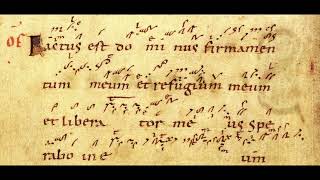 OF Factus est do mi nus firmamen
tum meum et refugium meum
et libera tor me us spe
rabo in e um